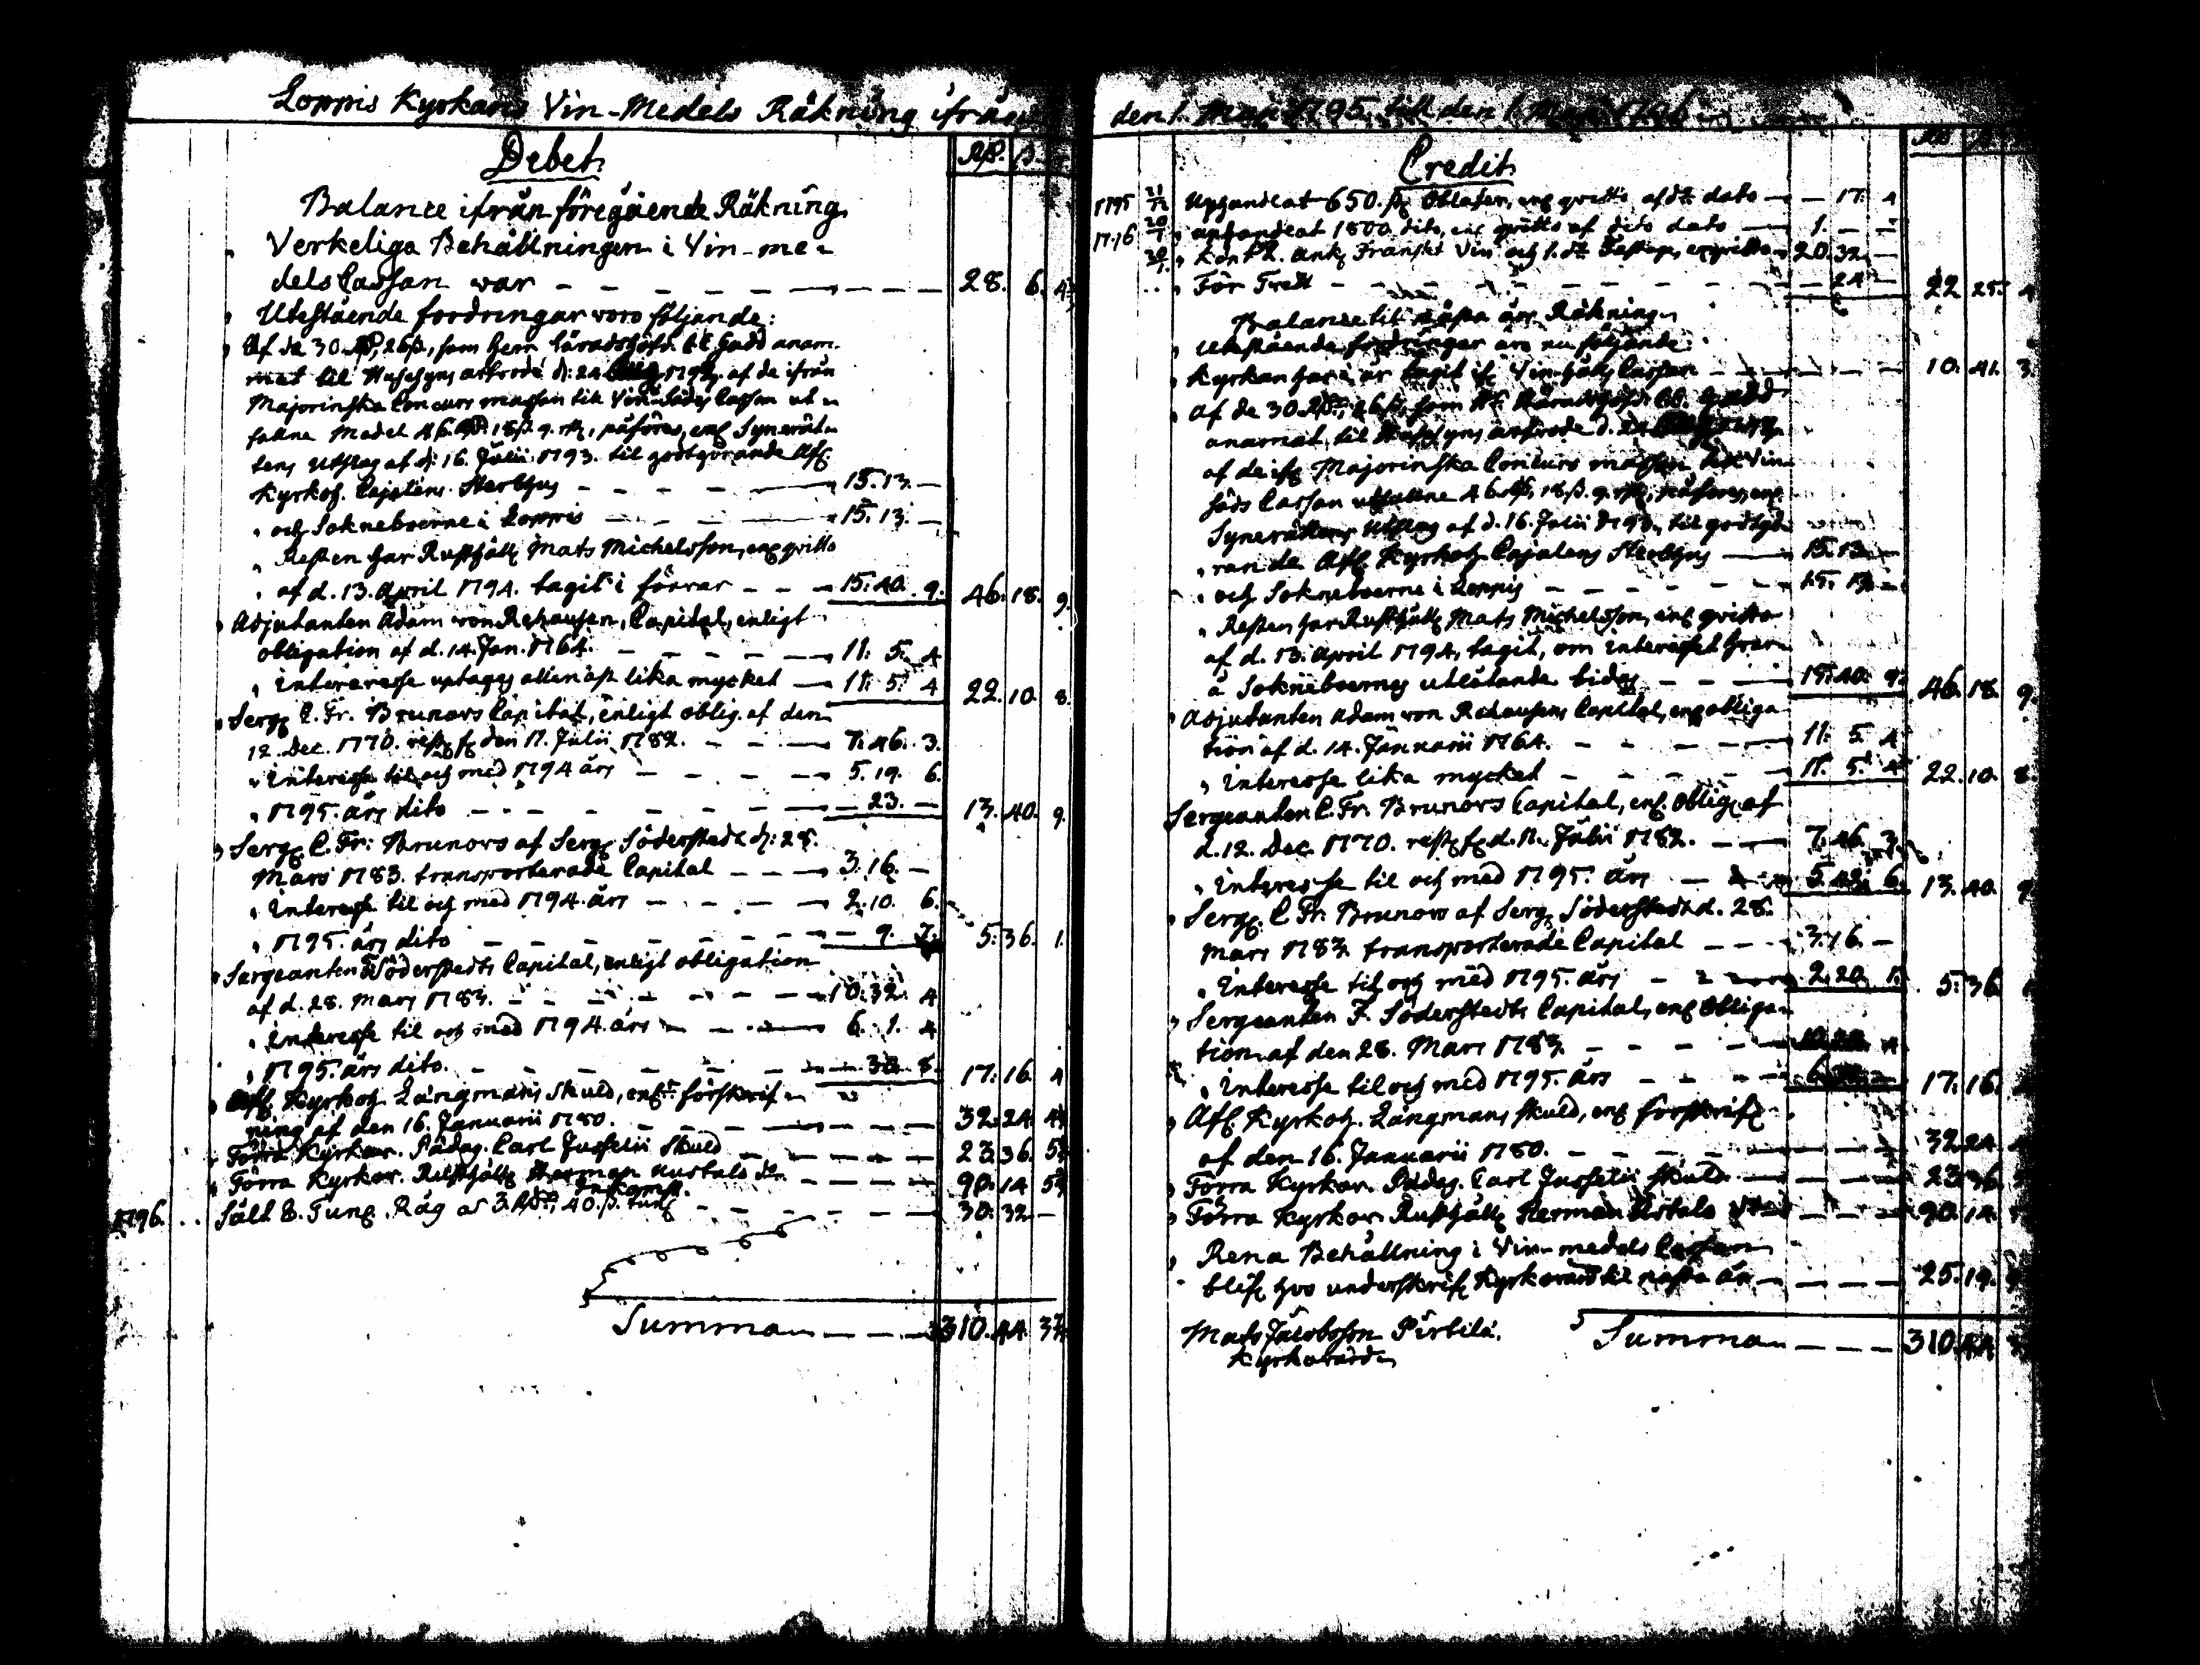 Loppis Kyrkans Vin-Medels Räkning ifrån
Debet.
Rß. ß.
Balance ifrån föregående Räkning.
Verkeliga Behållningen i Vin-me-
dels Cassan war — — — 28. 6. 4
Utestående fordringar voro följande:
Af de 30 Rd, 26 ß, som Herr Häradshöfd. Gadd anam-
mat til Husesyns arfvode d: 24 1792. af de ifrån
Majorinska Concurs massan til Vin-Säds Cassan ut-
fallne Medel 46. Rd. 18 ß. 9. r, påföres, enl. Synerät-
tens Utslag af d: 16. Julii 1793. til godtgörande Afl.
Kyrkoh. Cajaléns Sterbhus — — — 15. 13. —
och Sokneboerne i Loppis — — — 15. 13. —
Resten har Rusthåll. Mats Michelsson, enl. qvitto
af d. 13. April 1794. tagit i förvar — — — 15. 40. 9. 46. 18. 9.
Adjutanten Adam von Rehausen, Capital, enligt
obligation af d. 14. Jan. 1764. — — — 11. 5. 4
Interesse uptages allenast lika mycket — 11. 5. 4 22. 10. 8.
Serg. C. Fr. Brunors Capital, enligt oblig. af den
12. Dec. 1770. rest. den 17. Julii 1782. — — 7. 46. 3.
Interesse til och med 1794 års — — — 5. 19. 6.
1795. års dito — — — — 23. — 13. 40. 9.
Serg. C. Fr. Brunors af Serg. Söderstedt d: 28.
Mars 1783. transporterade Capital — — — 3. 16. —
Interesse til och med 1794. års — — — 2. 10. 6.
1795. års dito — — — — 9. 7. 5. 36. 1.
Sergeanten F. Söderstedts Capital, enligt obligation
af d. 28. Mars 1783. — — — 10. 32. 4
Interesse til och med 1794. års — — — 6. 1. 4
1795. års dito. — — — 30. 8. 17. 16. 4
Afl. Kyrkoh. Långmans skuld, enl. förskrif-
ning af den 16. Januarii 1780. — — — 32. 24. 4
Förra Kyrkov. Pädag. Carl Jusselii Skuld — — — 23. 36. 5
Förra Kyrkov. Rusthåll. Herman Ustals — — — 90. 14. 5
1796. Såld 8. Tun. Råg a 3. Rd, 40. ß. tun. — — — 30. 32 —
Summa — — — 310. 44. 3
den 1. Maji 1795. til den 1. Maji 1796
Credit.
1795 21/12 Uphandlat 650. st. Oblater, enl. qvitto af d:o dato — — 17. 4
1796 uphandlat 1800. dito, enl. qvitto af dito dato — 1. — —
ank. Franskt Vin och 1. Fastage, enl. qvitto — 20. 32. —
För Tvätt — — — 24 — 22 25. 4
Balance til nästa års Räkning.
Utestående fordringar äro nu följande:
Kyrkan har i år tagit if. Vin-Säds Cassan — — — 10. 41. 3.
Af de 30 Rd, 26 ß, som Hr. Häradshöfd. Gadd
anamat til Husesyns arfvode d. 24
af de if. Majorinska Concurs massan til Vin-
säds Cassan utfallne 46. Rd, 18. ß. 9. r, påföres, enl.
Synerättens Utslag af d. 16. Julii 1793, til godtgö-
rande Afl. Kyrkoh. Cajalens Sterbhus — — 15. 13. —
och Sokneboerne i Loppis — — — 15. 13. —
Resten har Rusthåll. Mats Michelsson, enl. qvitto
af d. 13. April 1794, tagit, om interesset hvar-
å Sokneboernes utlåtande bides — — — 15. 40. 9. 46. 18. 9.
Adjutanten Adam von Rehausens Capital, enl. obliga-
tion af d. 14. Januarii 1764. — — — 11. 5. 4
Interesse lika mycket — — — 11. 5. 4 22. 10. 8.
Sergeanten C. Fr. Brunors Capital, enl. oblig. af
d. 12. Dec. 1770. rest. d. 17. Julii 1782. — — 7. 46. 3.
Interesse til och med 1795. års — 5. 42. 6. 13. 40. 9.
Serg. C. Fr. Brunors af Serg. Söderstedt d. 28.
Mars 1783 transporterade Capital — — — 3. 16. —
Interesse til och med 1795. års — 2. 20. 1. 5. 36.
Sergeanten F. Söderstedts Capital, enl. obliga-
tion af den 28. Mars 1783 — — —
Interesse til och med 1795. års — — — 17. 16.
Afl. Kyrkoh. Långmans skuld, enl. förskrif.
af den 16. Januarii 1780. — — — 32 24.
Förra Kyrkov. Pädag. Carl Jusselii skuld — — — 23. 36.
Förra Kyrkov. Rusthåll. Herman Ustals — — — 90. 14.
Rena Behållning i Vin-medels Cassan
blif. hos underskrif. Kyrkovärd til nästa år — — — 25. 19. 9
Mats Jacobsson Pirtilä.
Kyrkovärd
Summa — — — 310. 44.